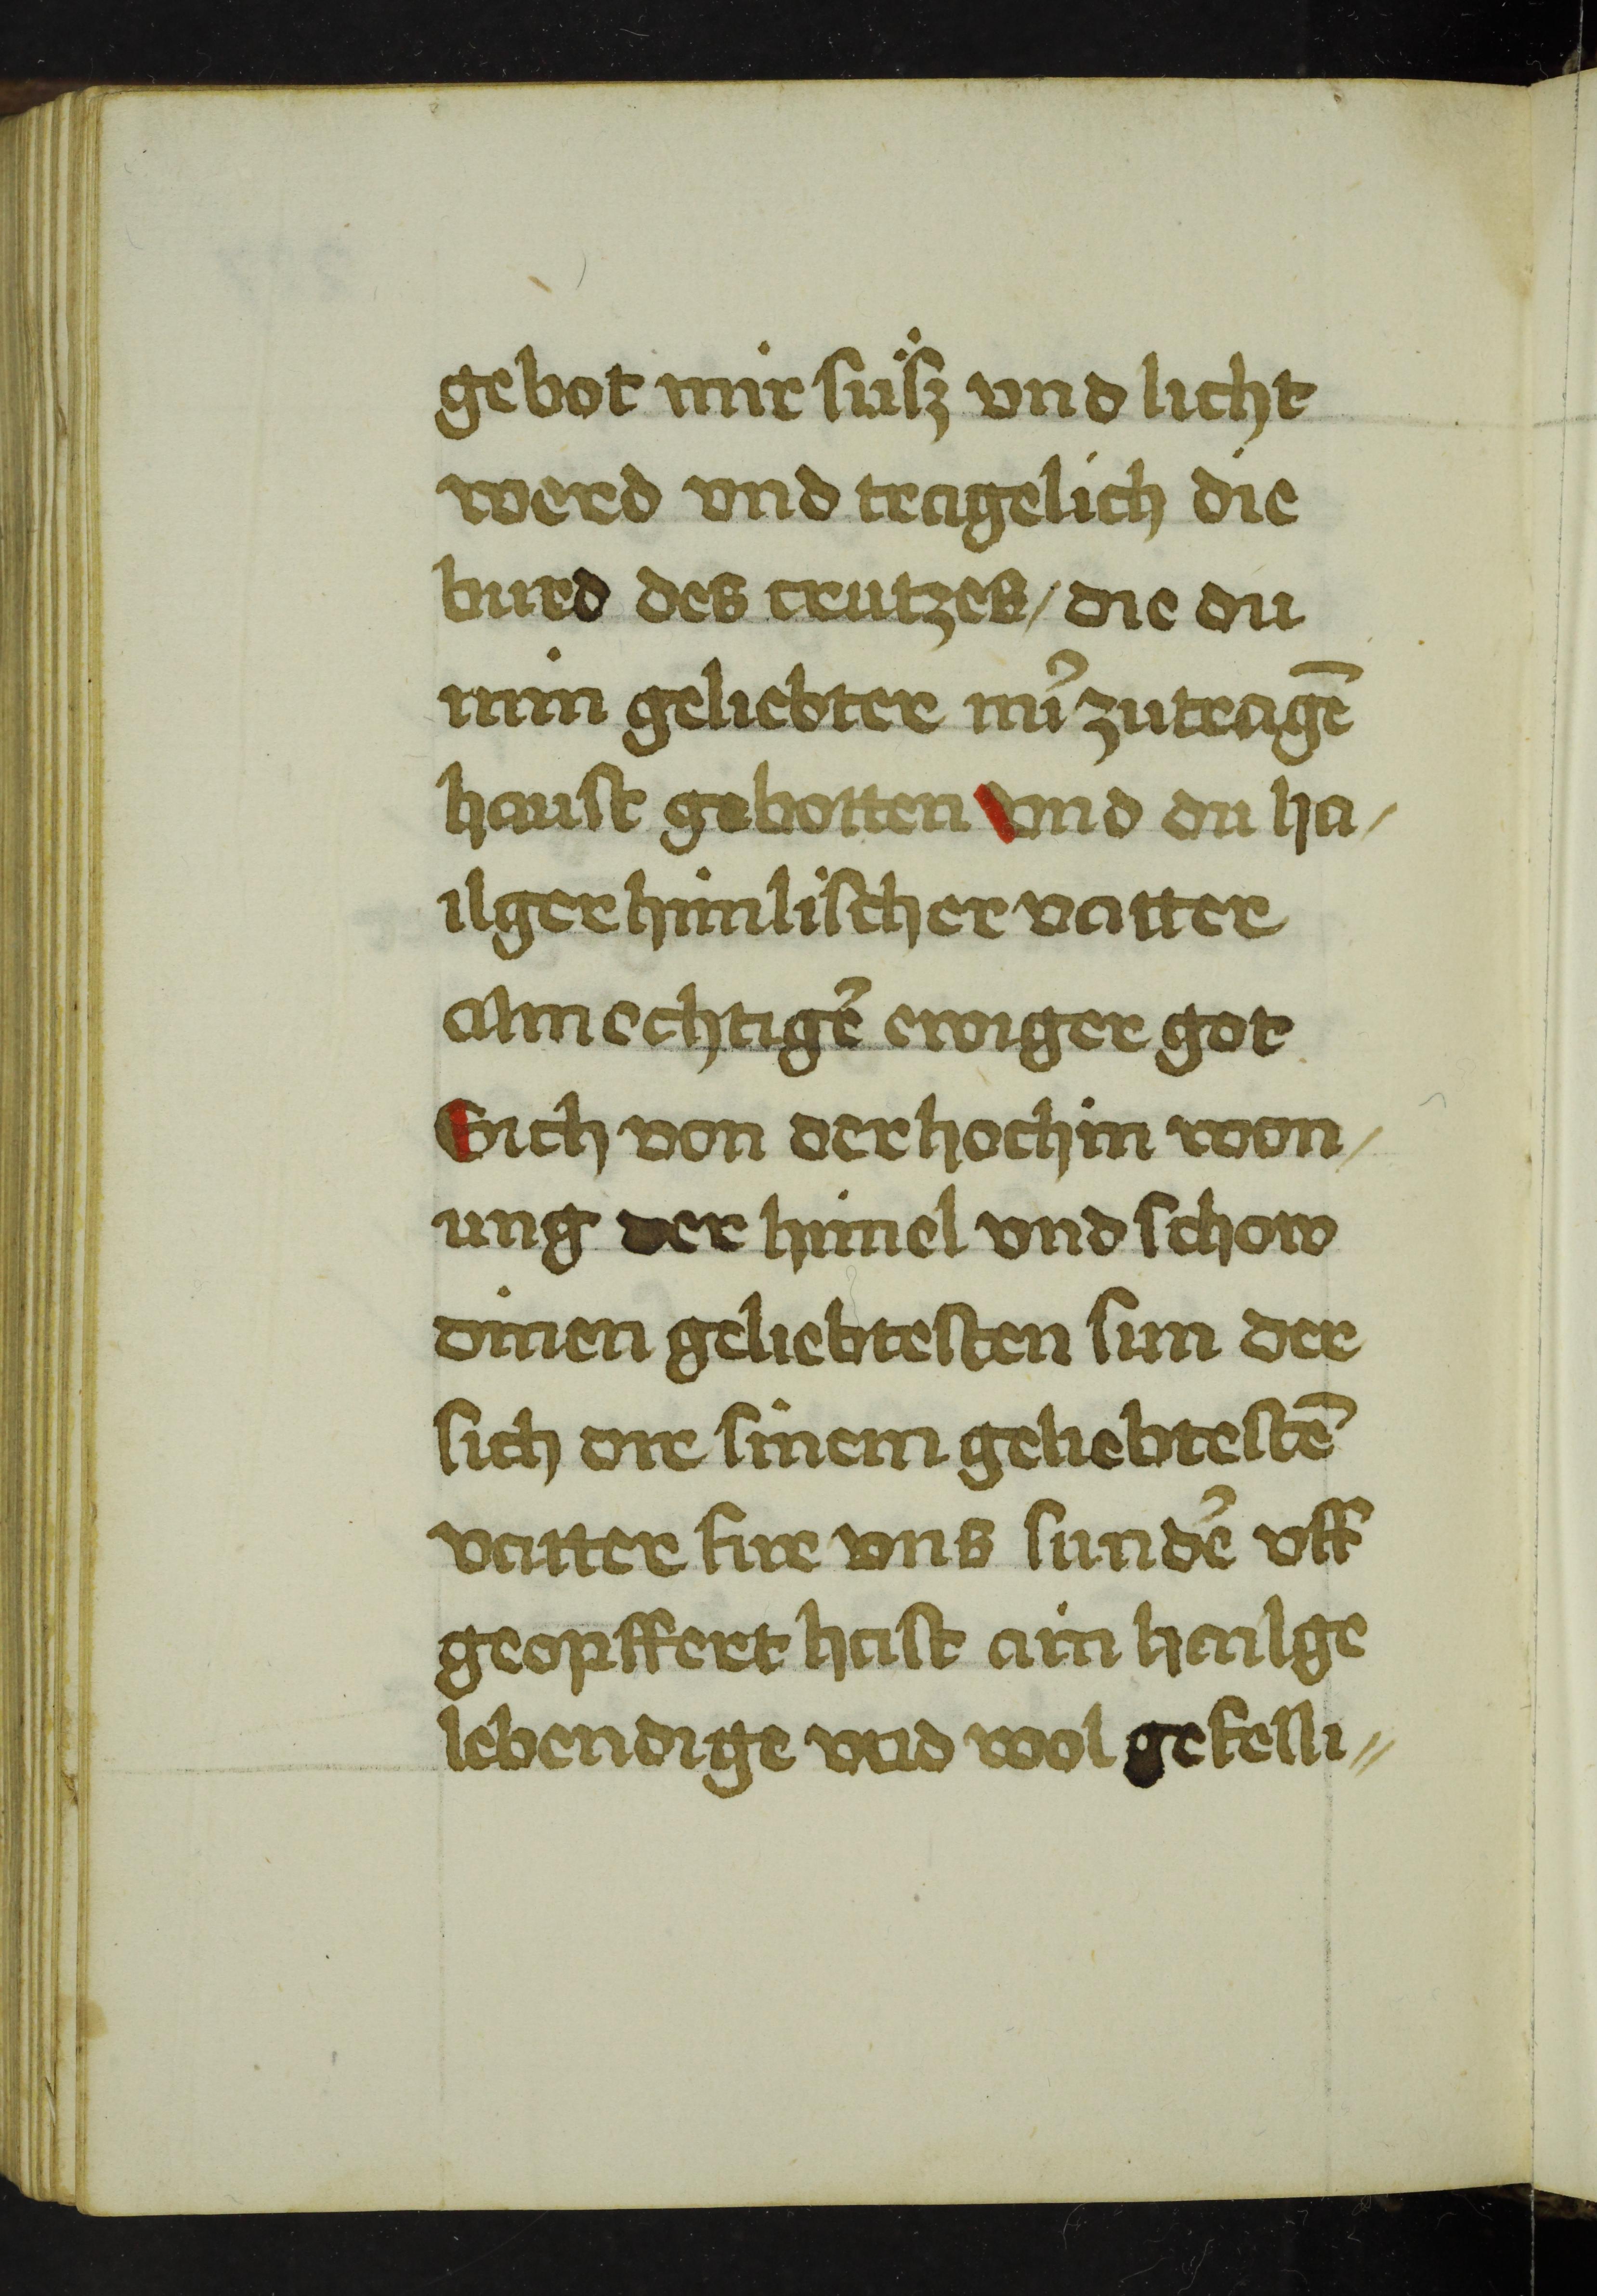 gebot mir süsz vnd licht
werd vnd tragelich die
burd des crutzes / die du
min geliebter mir̉ zutragē
haust gebotten vnd du ha/
ilger himlischer vatter
almechtigē̉ ewiger got
Sich von der hochin won/
ung der himel vnd schow
dinen geliebtesten sun der
sich dir sinem geliebtestē
vatter fur vns sundē̉ vff
geopffert hast ain hailge
lebendige vnd wol gefelli//